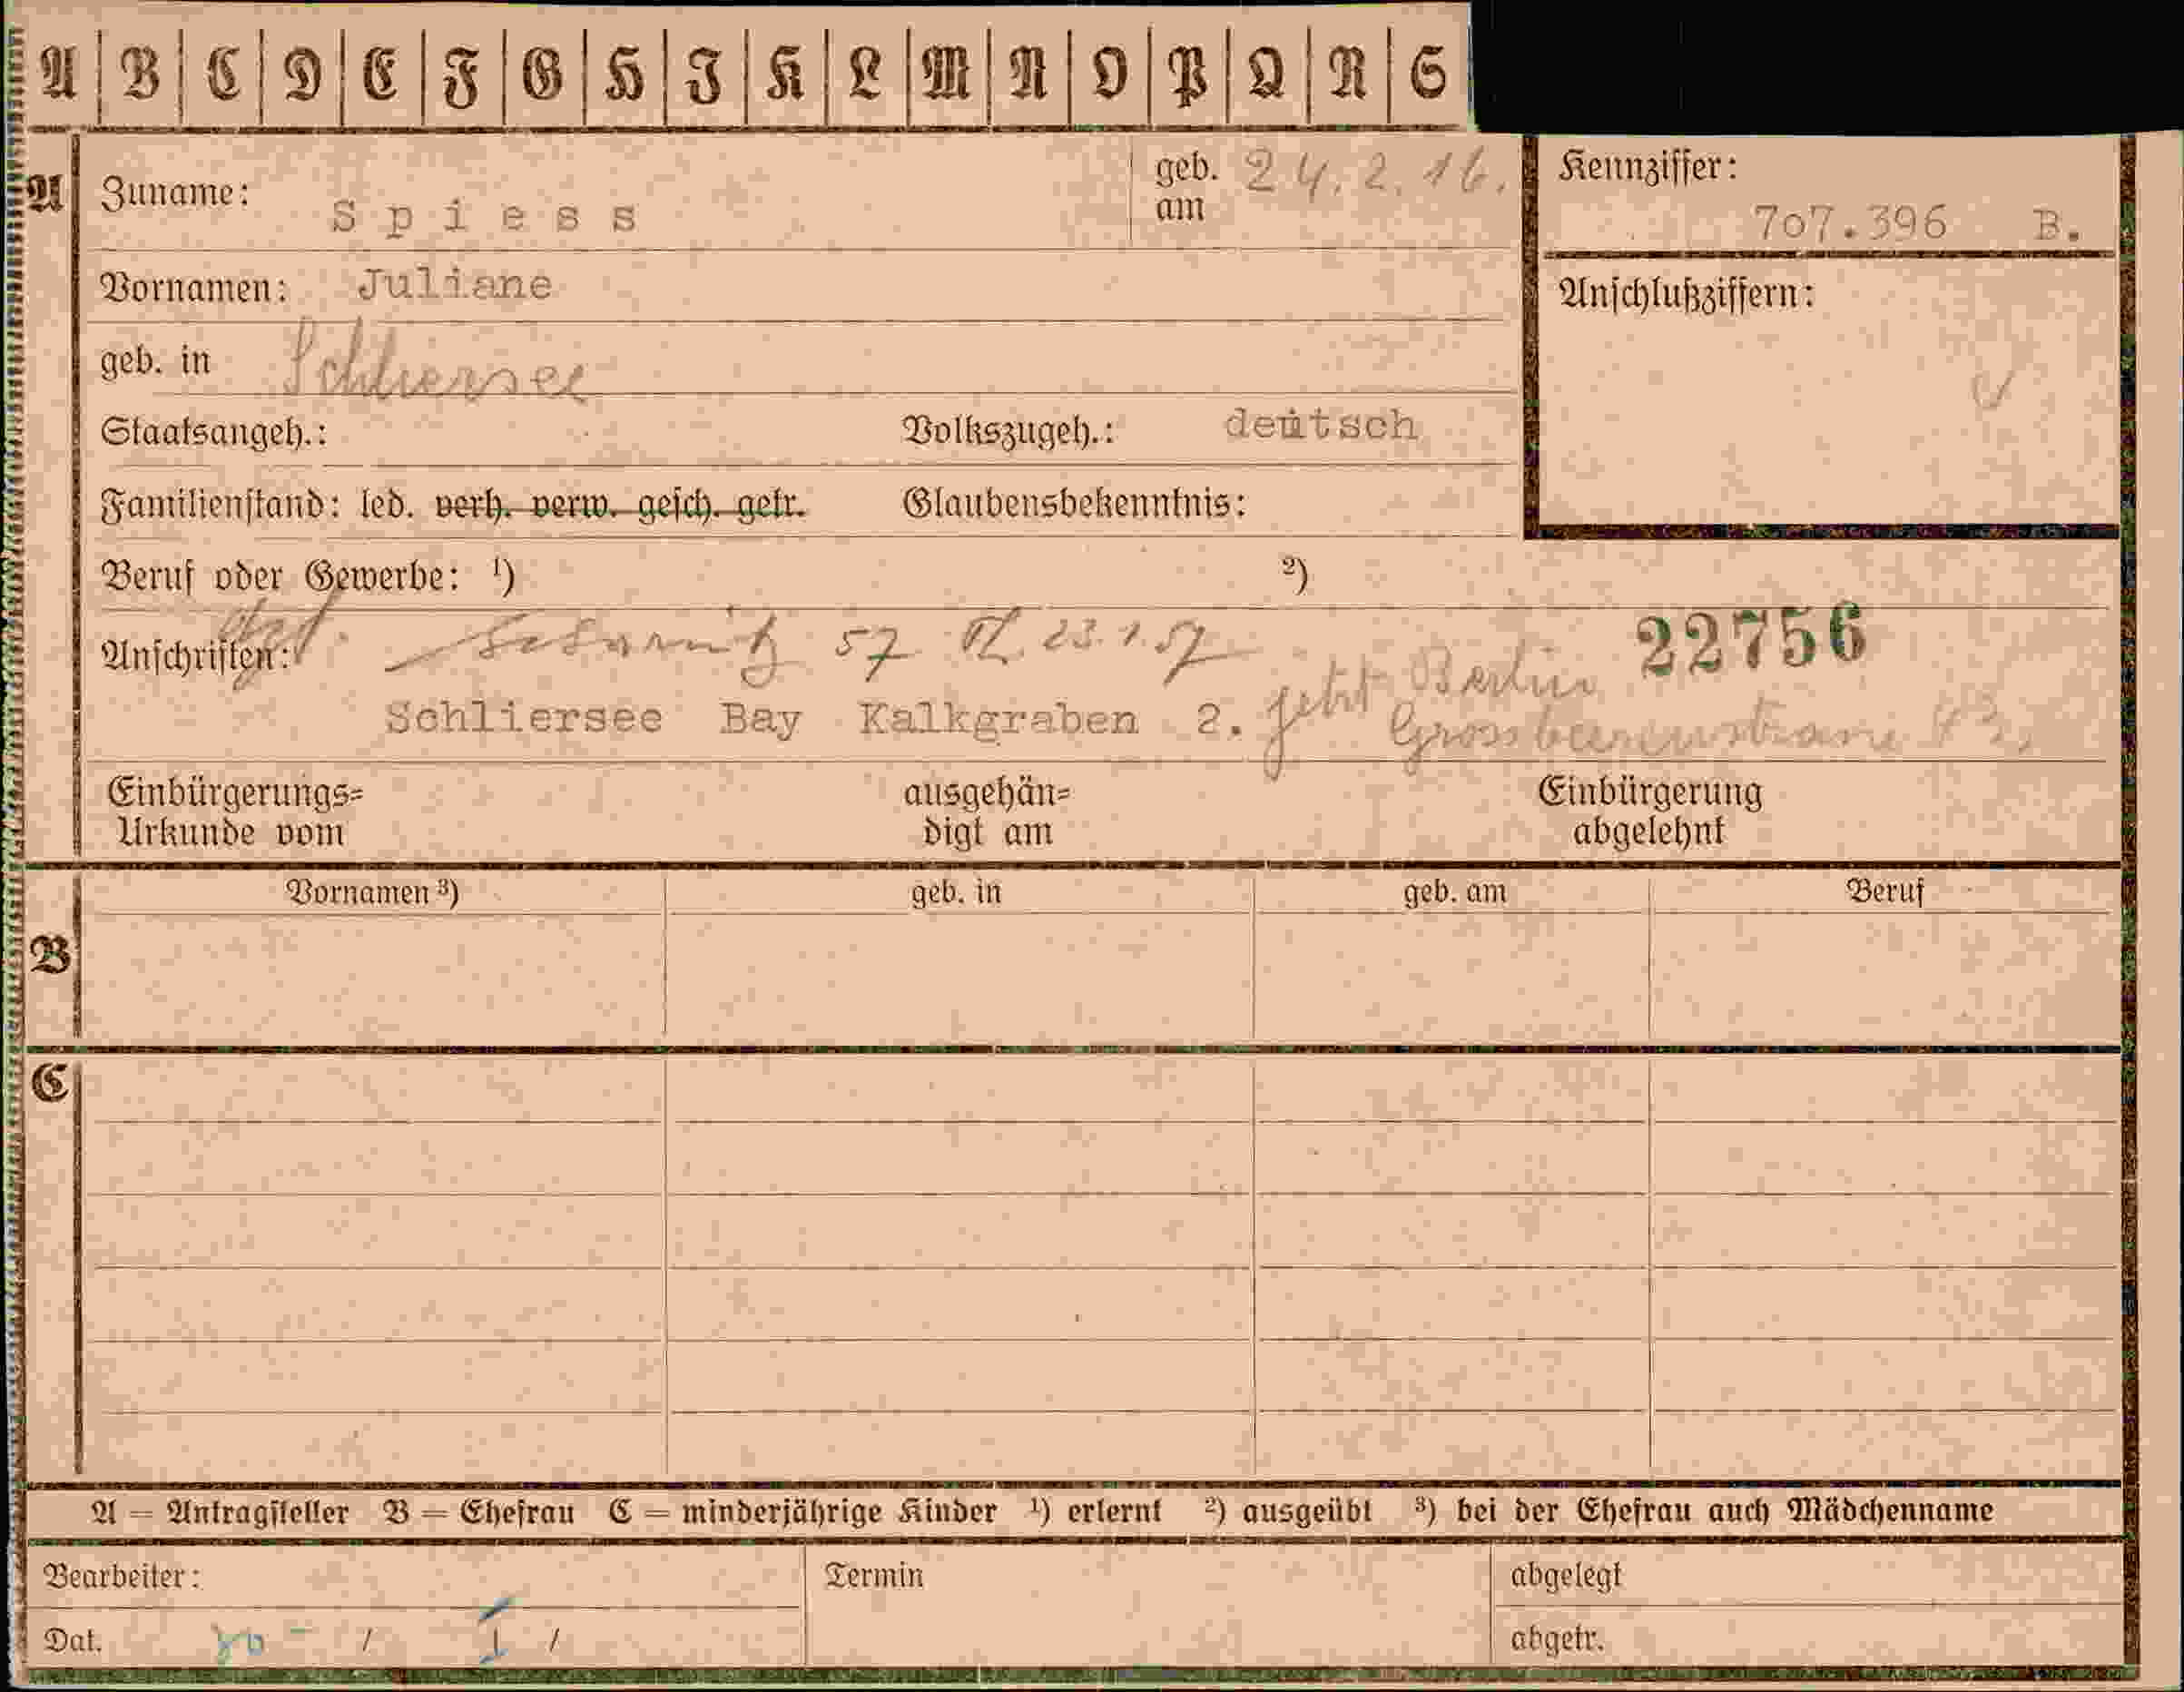 A B C D E F G H J K L M N O P Q R S
A Zuname: Spiess geb. am 24.2.16. Kennziffer: 7o7.396 B.
Vornamen: Juliane
Anschlußziffern:
geb. in Schliersee
Staatsangeh.: Volkszugeh.: deutsch
Familienstand: led. verh. verw. gesch. getr. Glaubensbekenntnis:
Beruf oder Gewerbe: 1) 2)
Anschriften: 57 23.1.57 22756
Schliersee Bay Kalkgraben 2. jetzt Berlin
Grossbeerenstrasse
Einbürgerungs= ausgehän= Einbürgerung
Urkunde vom digt am abgelehnt
Vornamen 3) geb. in geb. am Beruf
B
C
A = Antragsteller B = Ehefrau C = minderjährige Kinder 1) erlernt 2) ausgeübt 3) bei der Ehefrau auch Mädchenname
Bearbeiter: Termin abgelegt
Dat. / / abgetr.